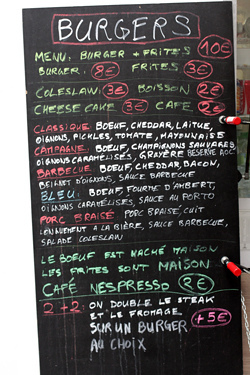 BURGERS
MENU: BURGER + FRITES 10€
BURGER: 8€ FRITES 3€
COLESLAW: 3€ BOISSON 2€
CHEESE CAKE 3€ CAFÉ 2€
CLASSIQUE: BOEUF, CHEDDAR, LAITUE,
OIGNONS, PICKLES, TOMATE, MAYONNAISE
CAMPAGNE: BOEUF, CHAMPIGNONS SAUVAGES,
OIGNONS CARAMELISÉS, GRUYÈRE RÉSERVE AOC
BARBECUE: BOEUF, CHEDDAR, BACON,
BEIGNET D'OIGNONS, SAUCE BARBECUE
BLEU: BOEUF, FOURME D'AMBERT,
OIGNONS CARAMÉLISÉS, SAUCE AU PORTO
PORC BRAISÉ: PORC BRAISÉ, CUIT
LONGUEMENT A LA BIÈRE, SAUCE BARBECUE,
SALADE COLESLAW
LE BOEUF EST HACHÉ MAISON
LES FRITES SONT MAISON
CAFÉ NESPRESSO 2€
2+2: ON DOUBLE LE STEAK
ET LE FROMAGE
SUR UN BURGER +5€
AU CHOIX